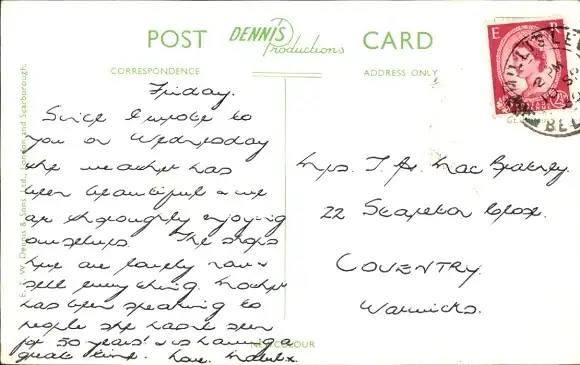 POST DENNIS Productions CARD
CORRESPONDENCE ADDRESS ONLY
E R
MILLISLE
2 PM
10 SP
BEL
Friday.
Since I wrote to
you on Wednesday
the weather has
been beautiful & we
are thoroughly enjoying
ourselves. The shops
here are lovely now &
sell everything. Mother
has been speaking to
people she hasnt seen
for 50 years! & is having a
great time. Love. Mabel x.
Mrs. J. A. Mac
22 Stapleton Close.
COVENTRY.
Warwicks.
W. Dennis & Sons Ltd., London and Scarborough.
COLOUR